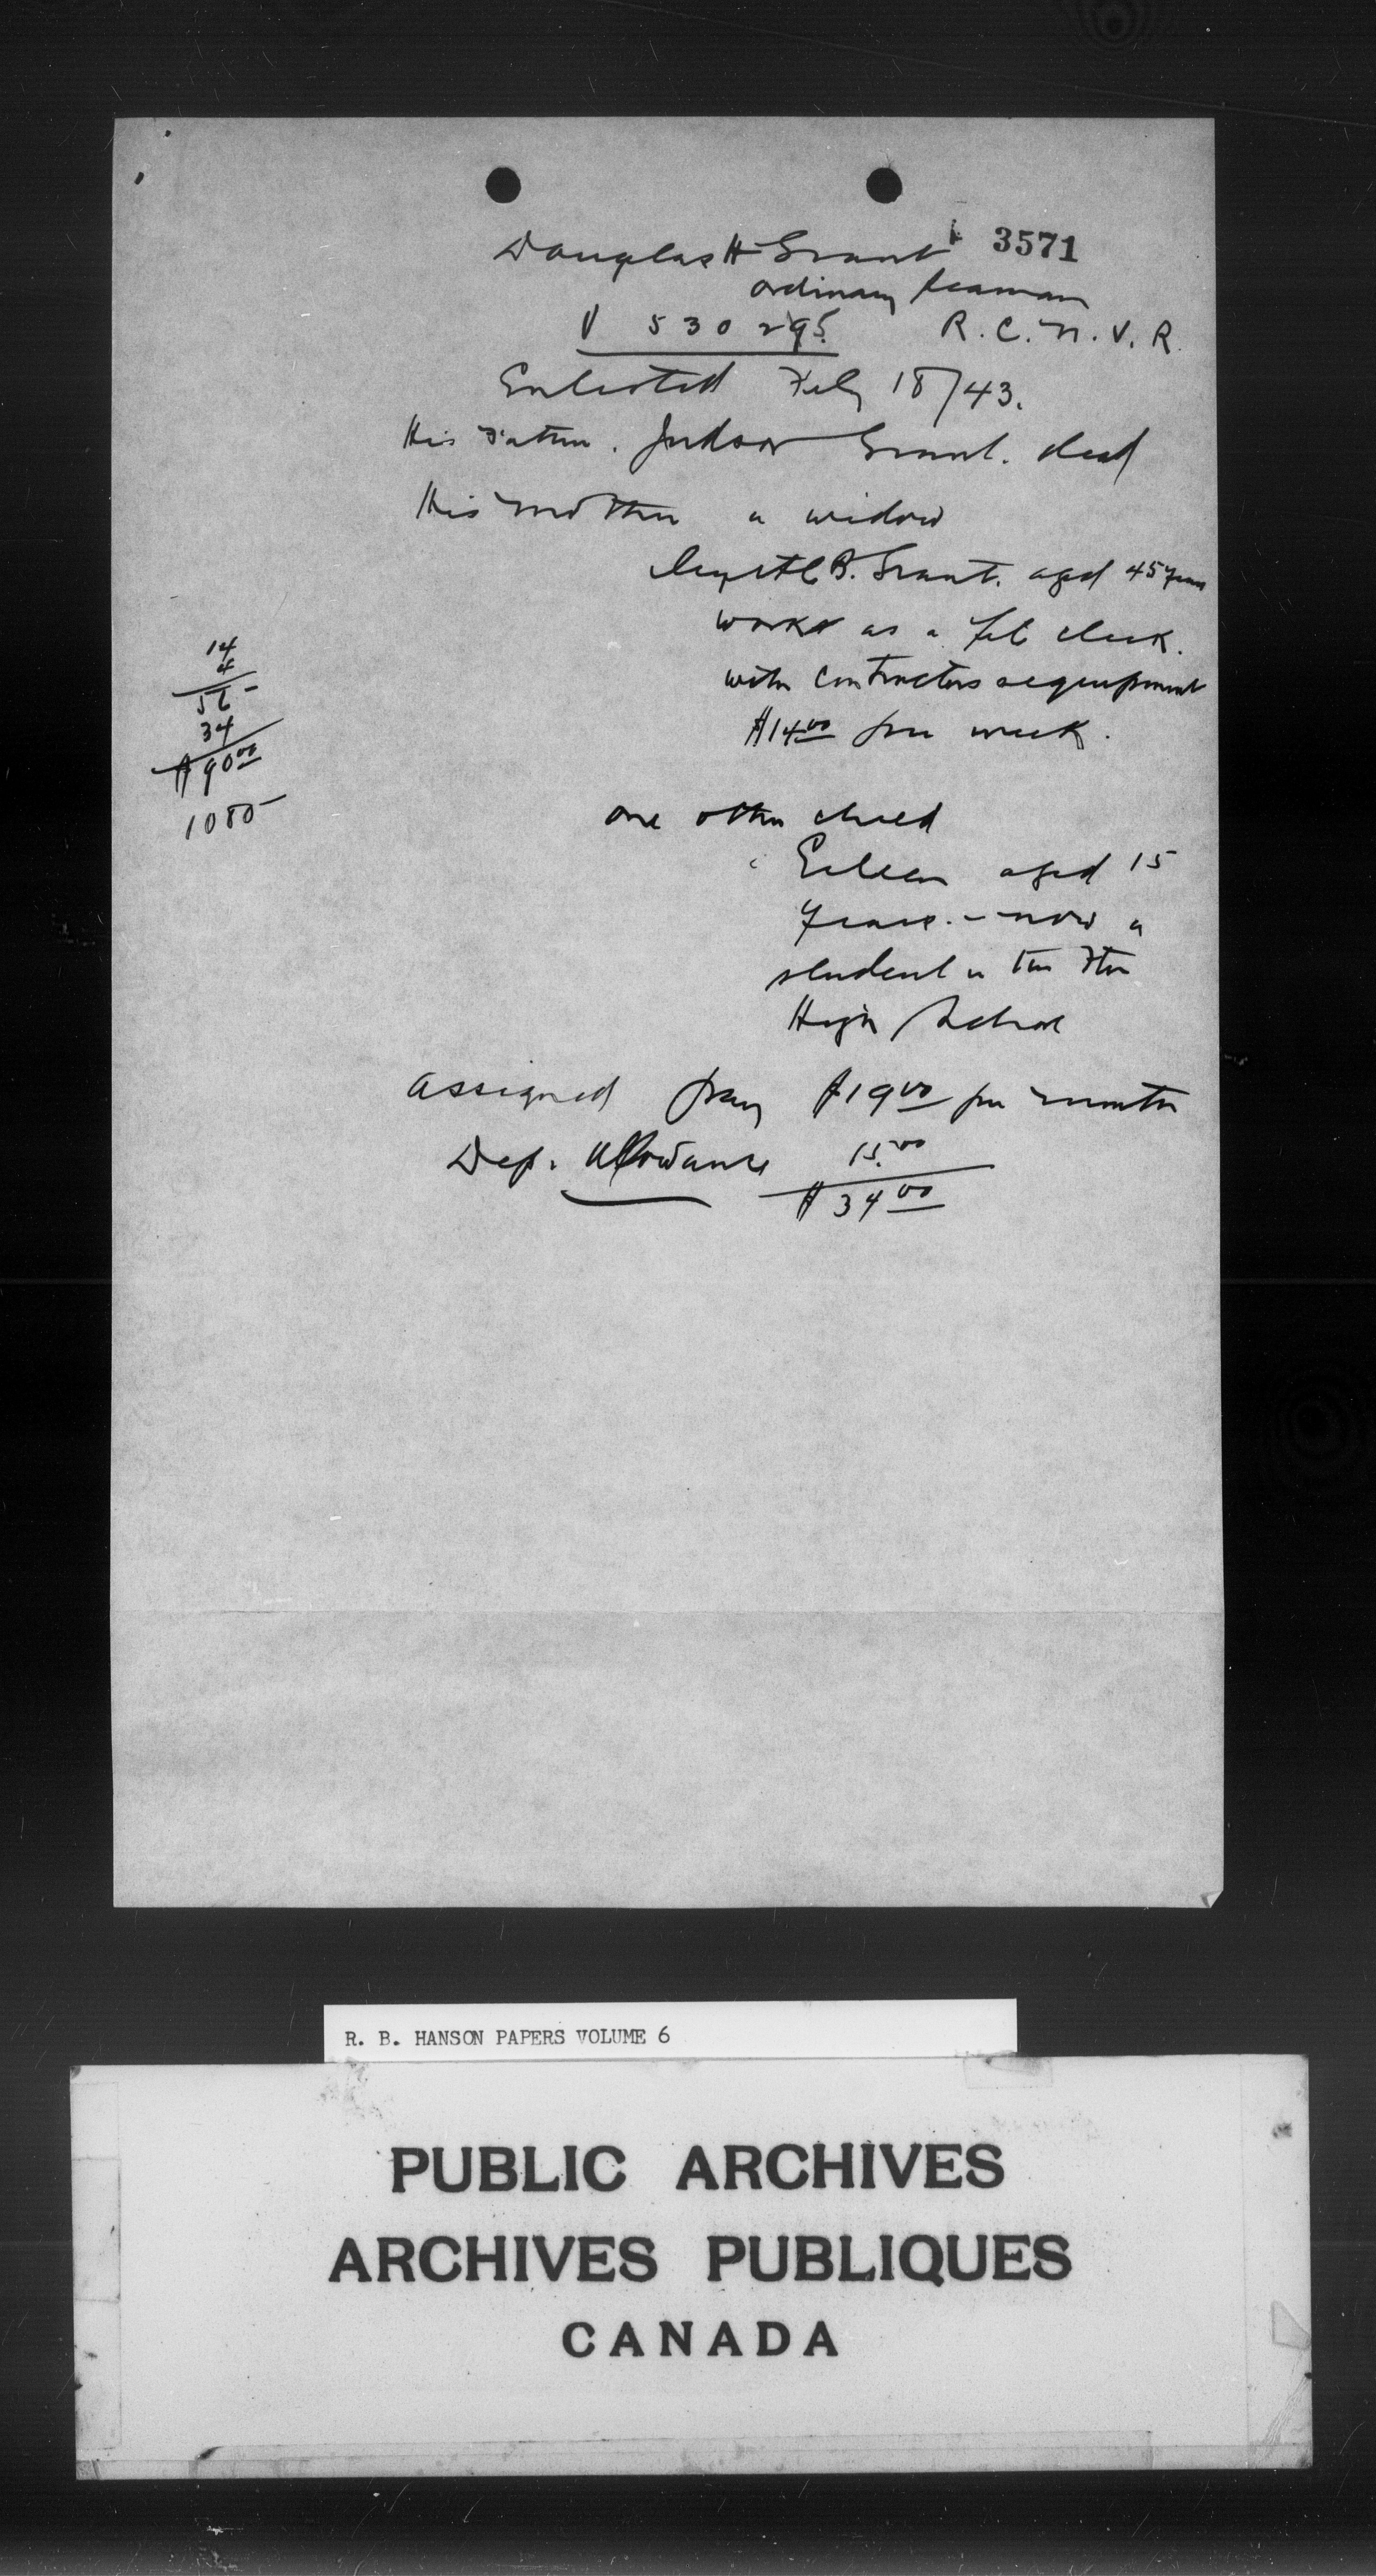 3571
Douglas H Grant
ordinary seaman
V 530295 R.C.N.V.R.
Enlisted Feby 18/43.
His Father. Judson Grant. dead
His mother a widow
Myrtle B. Grant. aged 45 years
works as a clerk.
with Contractors equipment
$14.00 per week.
14
4
56-
34
$90.00
1080-
one other child
Eileen aged 15
years. - now a
student in the Fton
High School
Assigned pay $19.00 per month
Dep. Allowance 15.00
$34.00
R. B. HANSON PAPERS VOLUME 6
PUBLIC ARCHIVES
ARCHIVES PUBLIQUES
CANADA